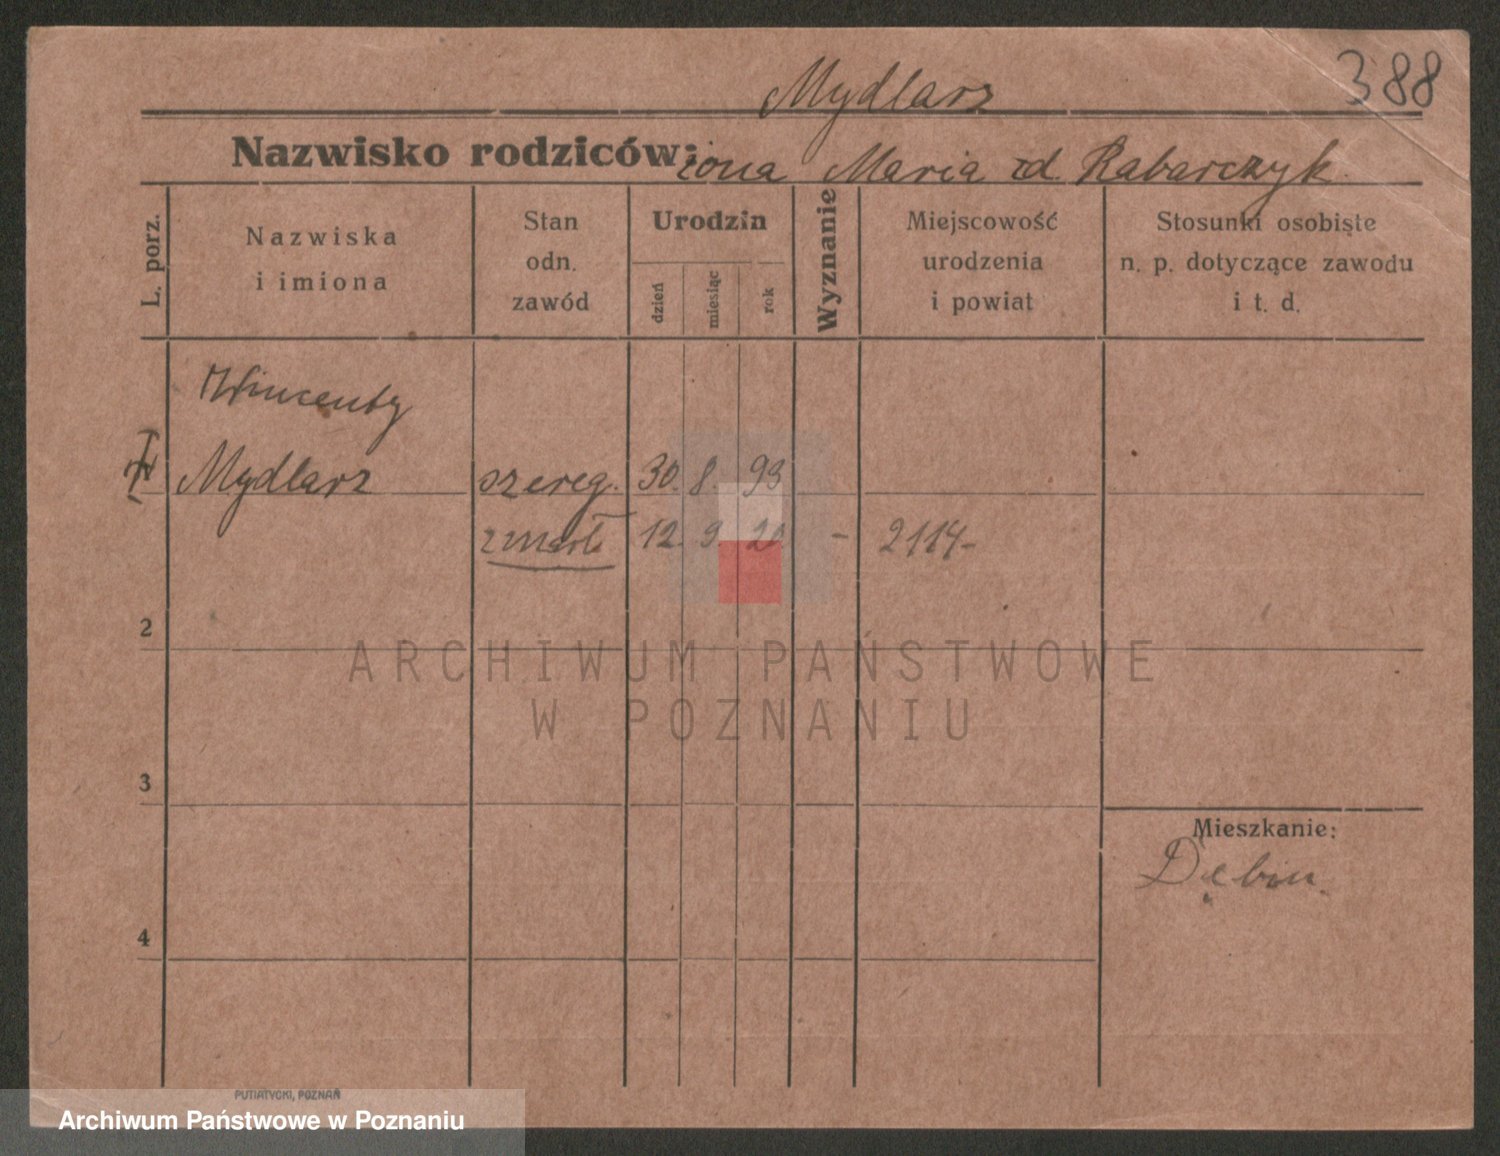 388
Mydlarz
Nazwisko rodziców: żona Maria zd. Rabarczyk
L. porz.
Nazwiska
i imiona
Stan
odn.
zawód
Urodzin
dzień
miesiąc
rok
Wyznanie
Miejscowość
urodzenia
i powiat
Stosunki osobiste
n. p. dotyczące zawodu
i t. d.
Wincenty
Mydlarz szereg. 30. 8. 93
zmarł 12. 9. 20 - 2114-
2
3
4
Mieszkanie:
Dębin
ARCHIWUM PAŃSTWOWE
W POZNANIU
PUTIATYCKI, POZNAŃ
Archiwum Państwowe w Poznaniu